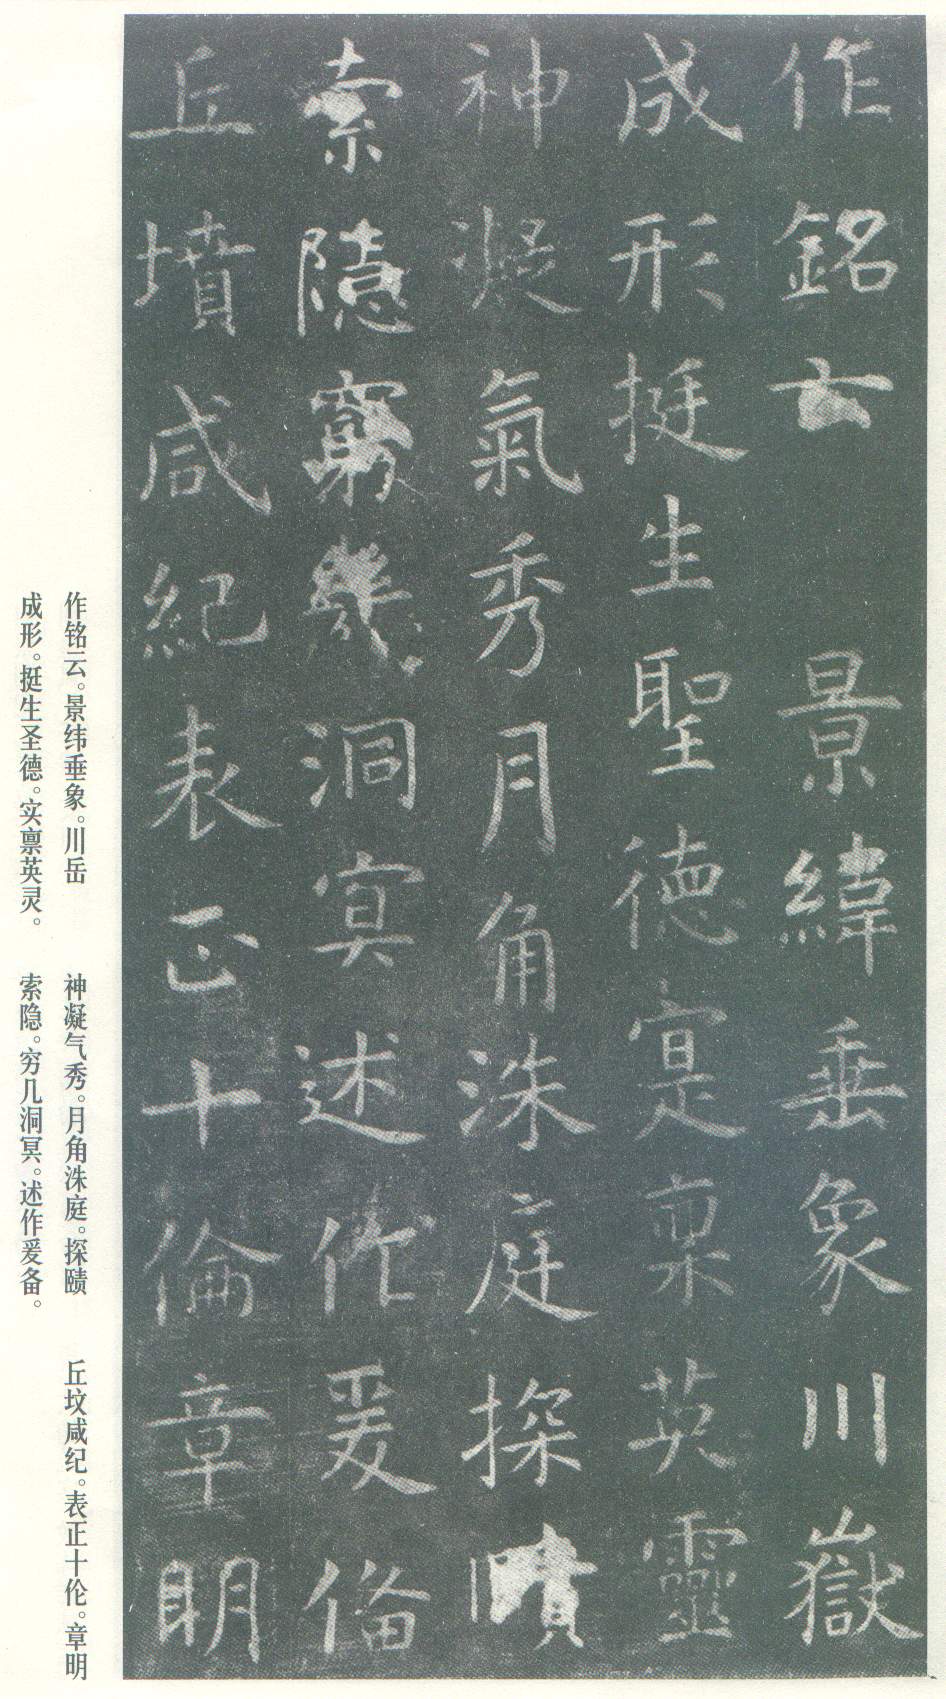 作銘云景緯垂象川嶽
成形挺生聖德寔稟英靈
神凝氣秀月角洙庭探賾
索隱窮幾洞冥述作爰俻
丘墳咸紀表正十倫章明
作铭云。景纬垂象。川岳
成形。挺生圣德。实禀英灵。
神凝气秀。月角洙庭。探赜
索隐。穷几洞冥。述作爰备。
丘坟咸纪。表正十伦。章明